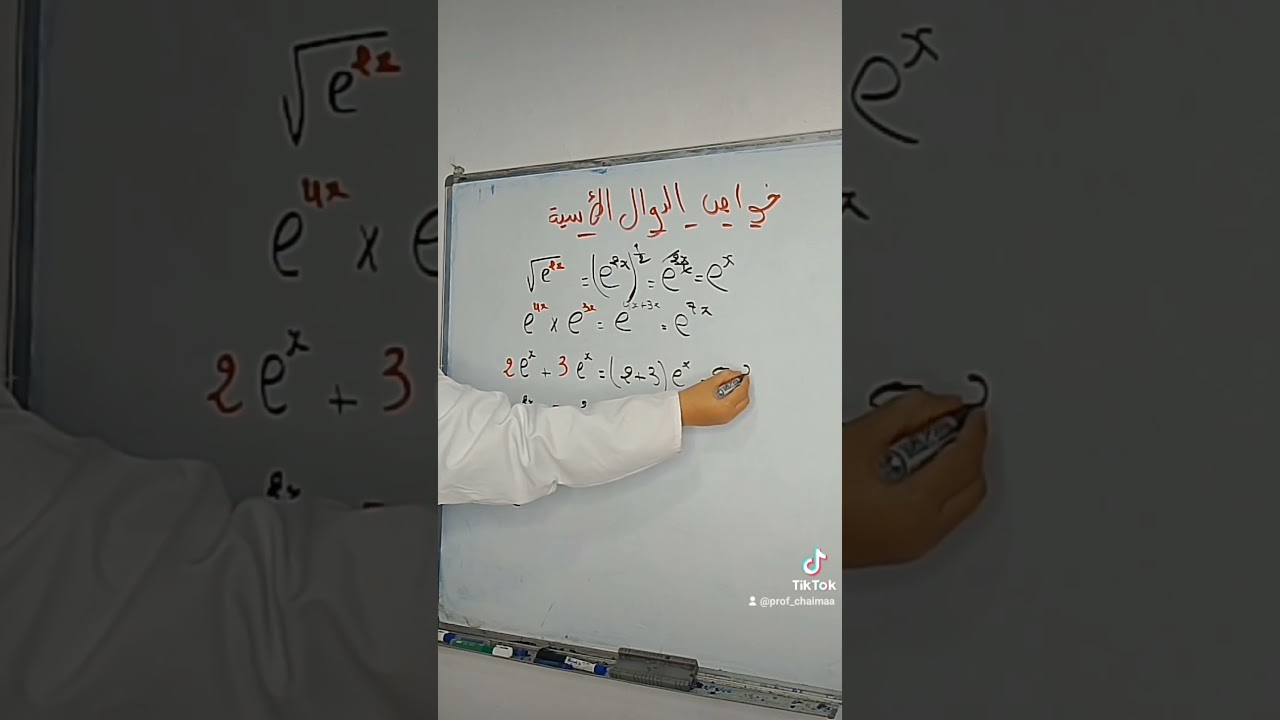 خواص الدوال الأسية
√e^2x = (e^2x)^1/2 = e^2x/2 = e^x
e^4x x e^3x = e^4x+3x = e^7x
2e^x + 3e^x = (2+3)e^x
2x
TikTok
@prof_chaimaa